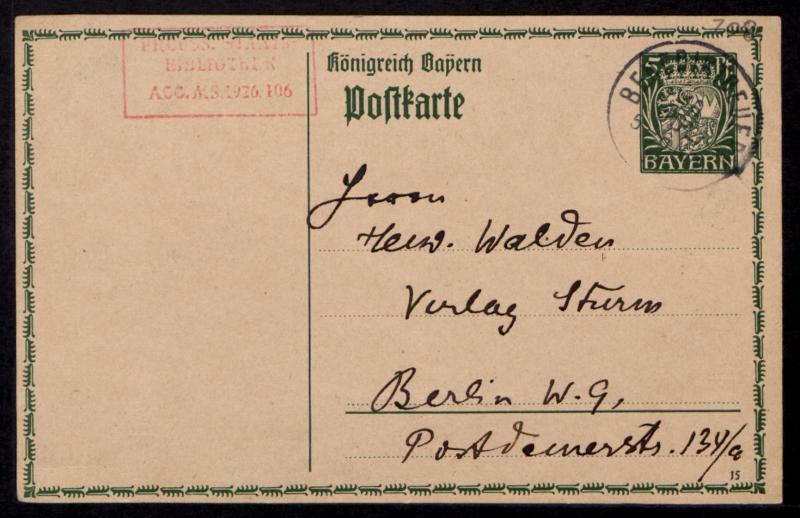 PREUSS. STAATS-
BIBLIOTHEK
ACC. MS. 1926. 106
Königreich Bayern
Postkarte
5 Pf
BAYERN
Herrn
Herw. Walden
Verlag Sturm
Berlin W. 9,
Postdamerstr. 134/a
15